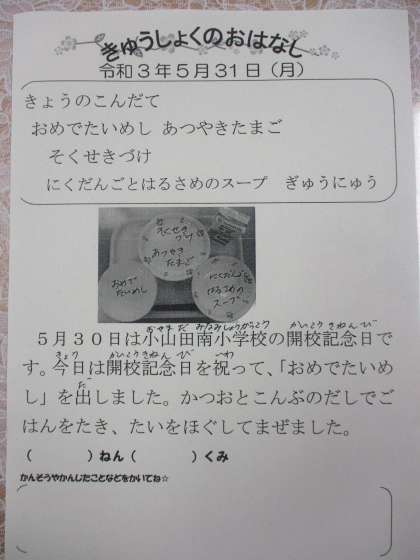 きゅうしょくのおはなし
令和3年5月31日（月）
きょうのこんだて
おめでたいめし あつやきたまご
そくせきづけ
にくだんごとはるさめのスープ ぎゅうにゅう
そくせき
づけ
あつやき
たまご
おめで
たいめし
にくだんごと
はるさめの
スープ
おやまだみなみしょうがっこう かいこうきねんび
5月30日は小山田南小学校の開校記念日で
きょう かいこうきねんび いわ
す。今日は開校記念日を祝って、「おめでたいめ
だ
し」を出しました。かつおとこんぶのだしでご
はんをたき、たいをほぐしてまぜました。
（ ）ねん（ ）くみ
かんそうやかんじたことなどをかいてね☆